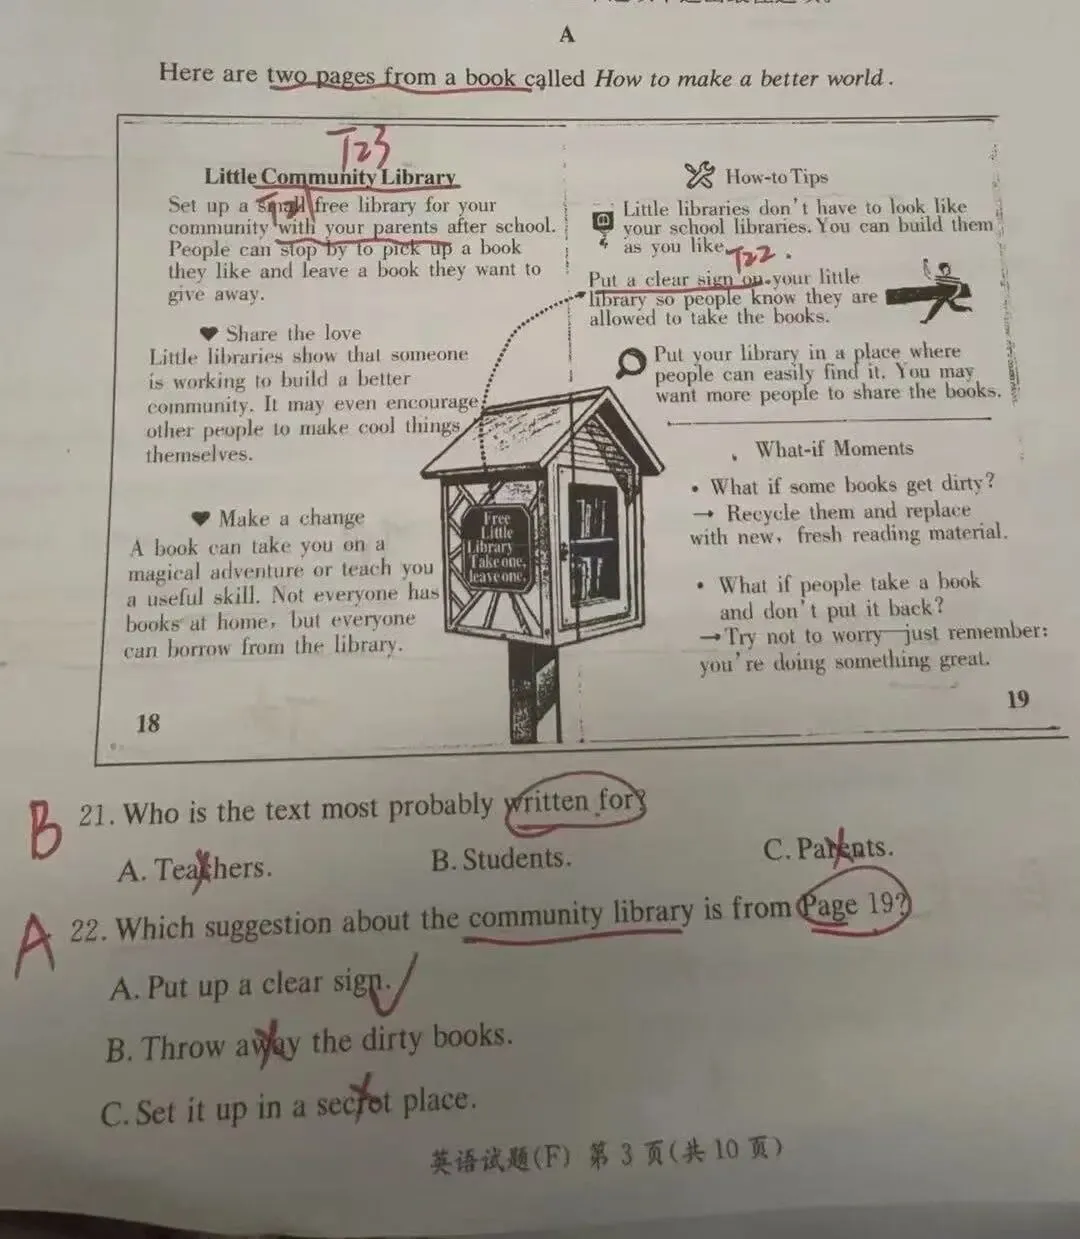 A
Here are two pages from a book called How to make a better world.
T23
Little Community Library
T21
Set up a small free library for your
community with your parents after school.
People can stop by to pick up a book
they like and leave a book they want to
give away.
♥ Share the love
Little libraries show that someone
is working to build a better
community. It may even encourage
other people to make cool things
themselves.
♥ Make a change
A book can take you on a
magical adventure or teach you
a useful skill. Not everyone has
books at home, but everyone
can borrow from the library.
18
Free
Little
Library
Take one,
leave one.
How-to Tips
Little libraries don't have to look like
your school libraries. You can build them
as you like.
T22.
Put a clear sign on your little
library so people know they are
allowed to take the books.
Put your library in a place where
people can easily find it. You may
want more people to share the books.
What-if Moments
• What if some books get dirty?
→ Recycle them and replace
with new, fresh reading material.
• What if people take a book
and don't put it back?
→Try not to worry—just remember:
you're doing something great.
19
B 21. Who is the text most probably written for?
A. Teachers. B. Students. C. Parents.
A 22. Which suggestion about the community library is from Page 19?
A. Put up a clear sign.
B. Throw away the dirty books.
C. Set it up in a secret place.
英语试题(F) 第 3 页(共 10 页)